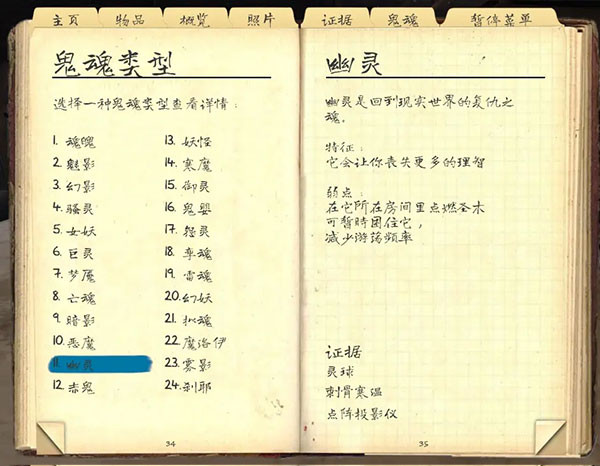 主页 物品 概览 照片 证据 鬼魂 暂停菜单
鬼魂类型
选择一种鬼魂类型查看详情：
1. 魂魄
2. 魅影
3. 幻影
4. 骚灵
5. 女妖
6. 巨灵
7. 梦魇
8. 亡魂
9. 暗影
10. 恶魔
11. 幽灵
12. 赤鬼
13. 妖怪
14. 寒魔
15. 御灵
16. 鬼婴
17. 怨灵
18. 孪魂
19. 雷魂
20. 幻妖
21. 拟魂
22. 魔洛伊
23. 雾影
24. 刹耶
34
幽灵
幽灵是回到现实世界的复仇之
魂。
特征：
它会让你丧失更多的理智
弱点：
在它所在房间里点燃圣木
可暂时困住它，
减少游荡频率
证据
灵球
刺骨寒温
点阵投影仪
35